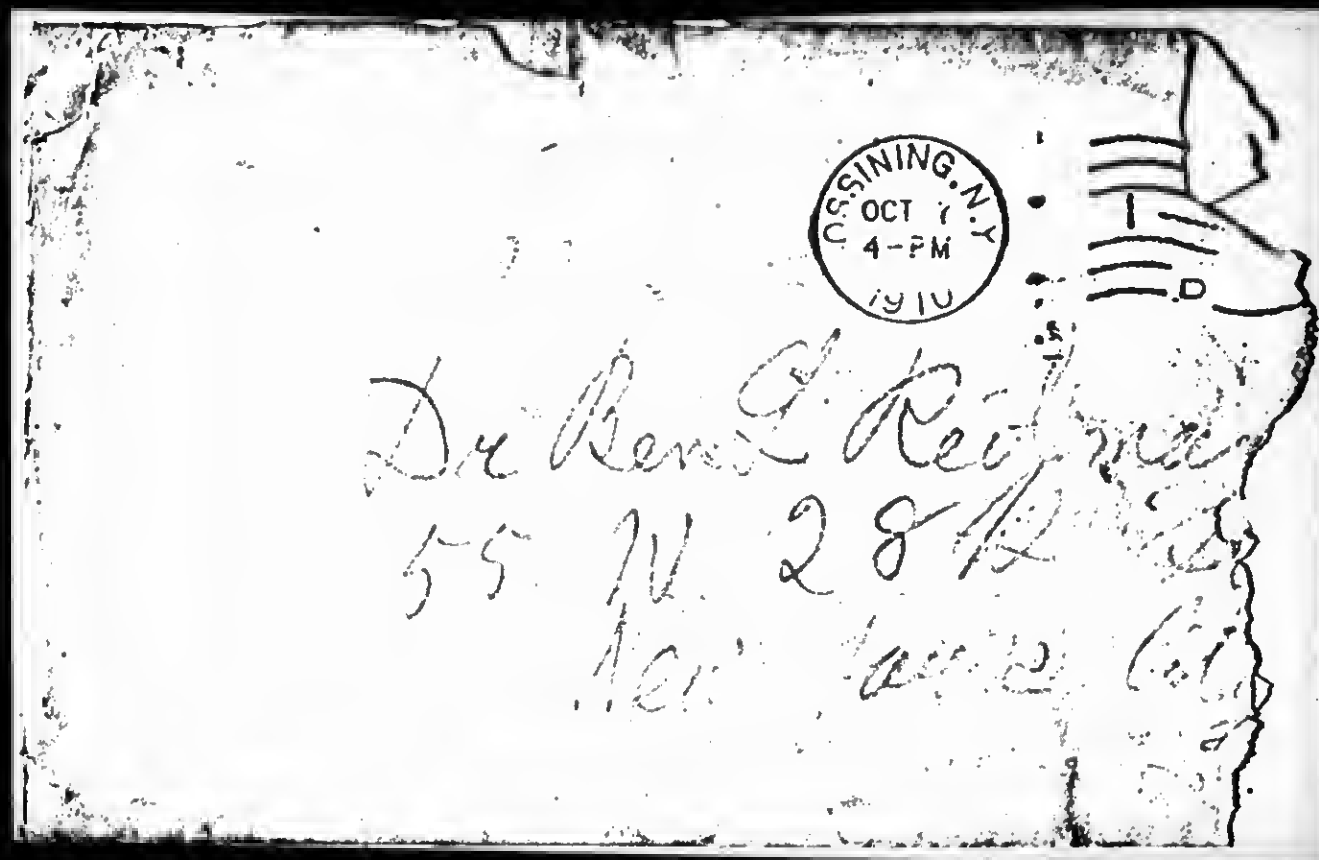 OSSINING, N.Y
OCT 7
4-PM
1910
D
Dr Ben L Reitma
55 W. 28th St
New York City